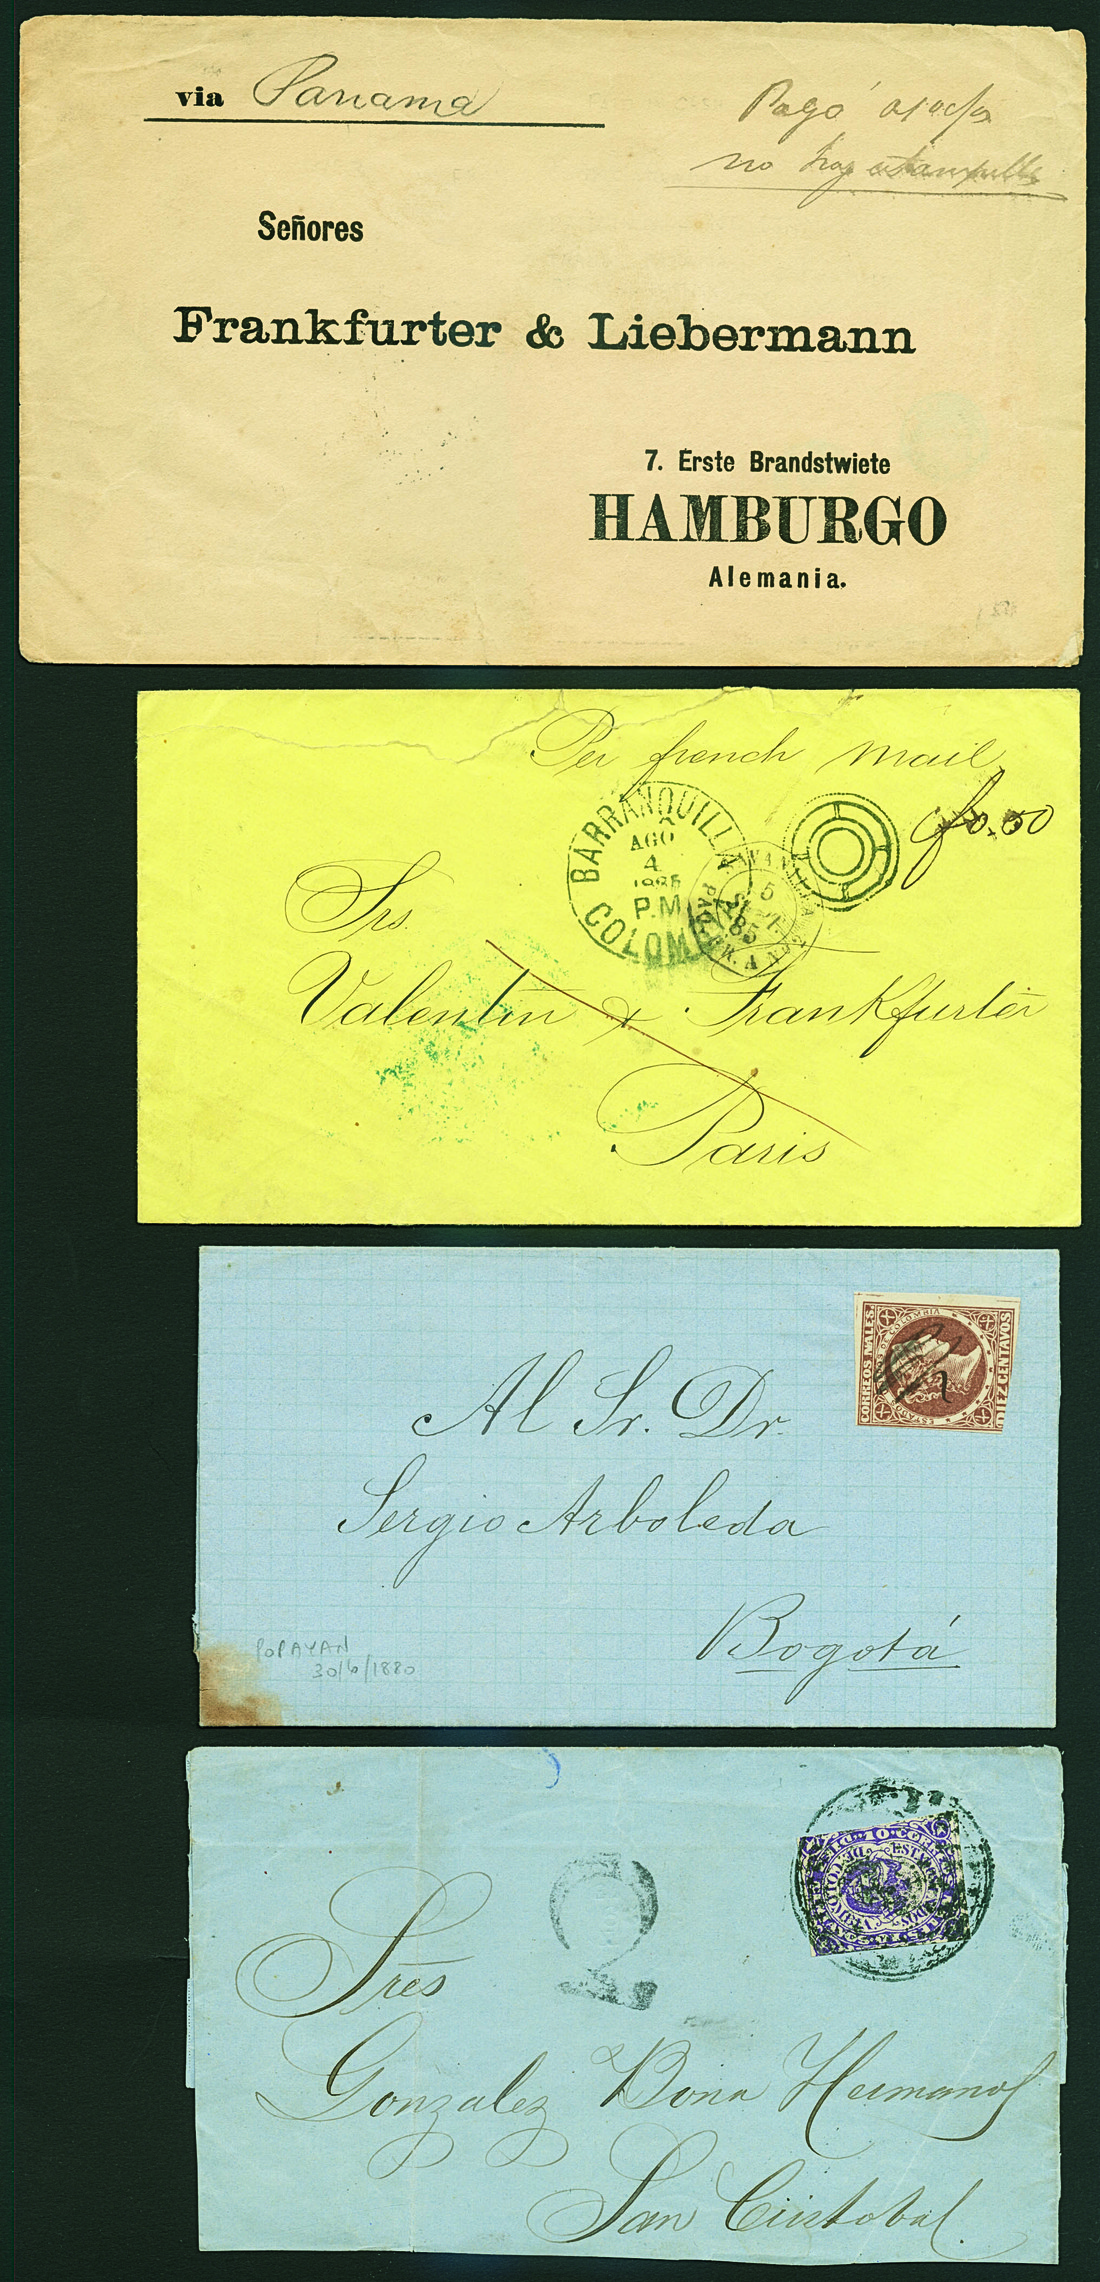 via Panama
Pagó
no hay estampilla
Señores
Frankfurter & Liebermann
7. Erste Brandstwiete
HAMBURGO
Alemania.
Per french mail
f0.50
BARRANQUILLA
AGO
4
P.M
COLOM
5
85
Srs.
Valentin & Frankfurter
Paris
CORREOS NALES
ESTADOS DE COLOMBIA
DIEZ CENTAVOS
Al Sr. Dr.
Sergio Arboleda
Bogotá
POPAYAN
30/6/1880
2
Sres
Gonzalez Bona Hermanos
San Cristobal